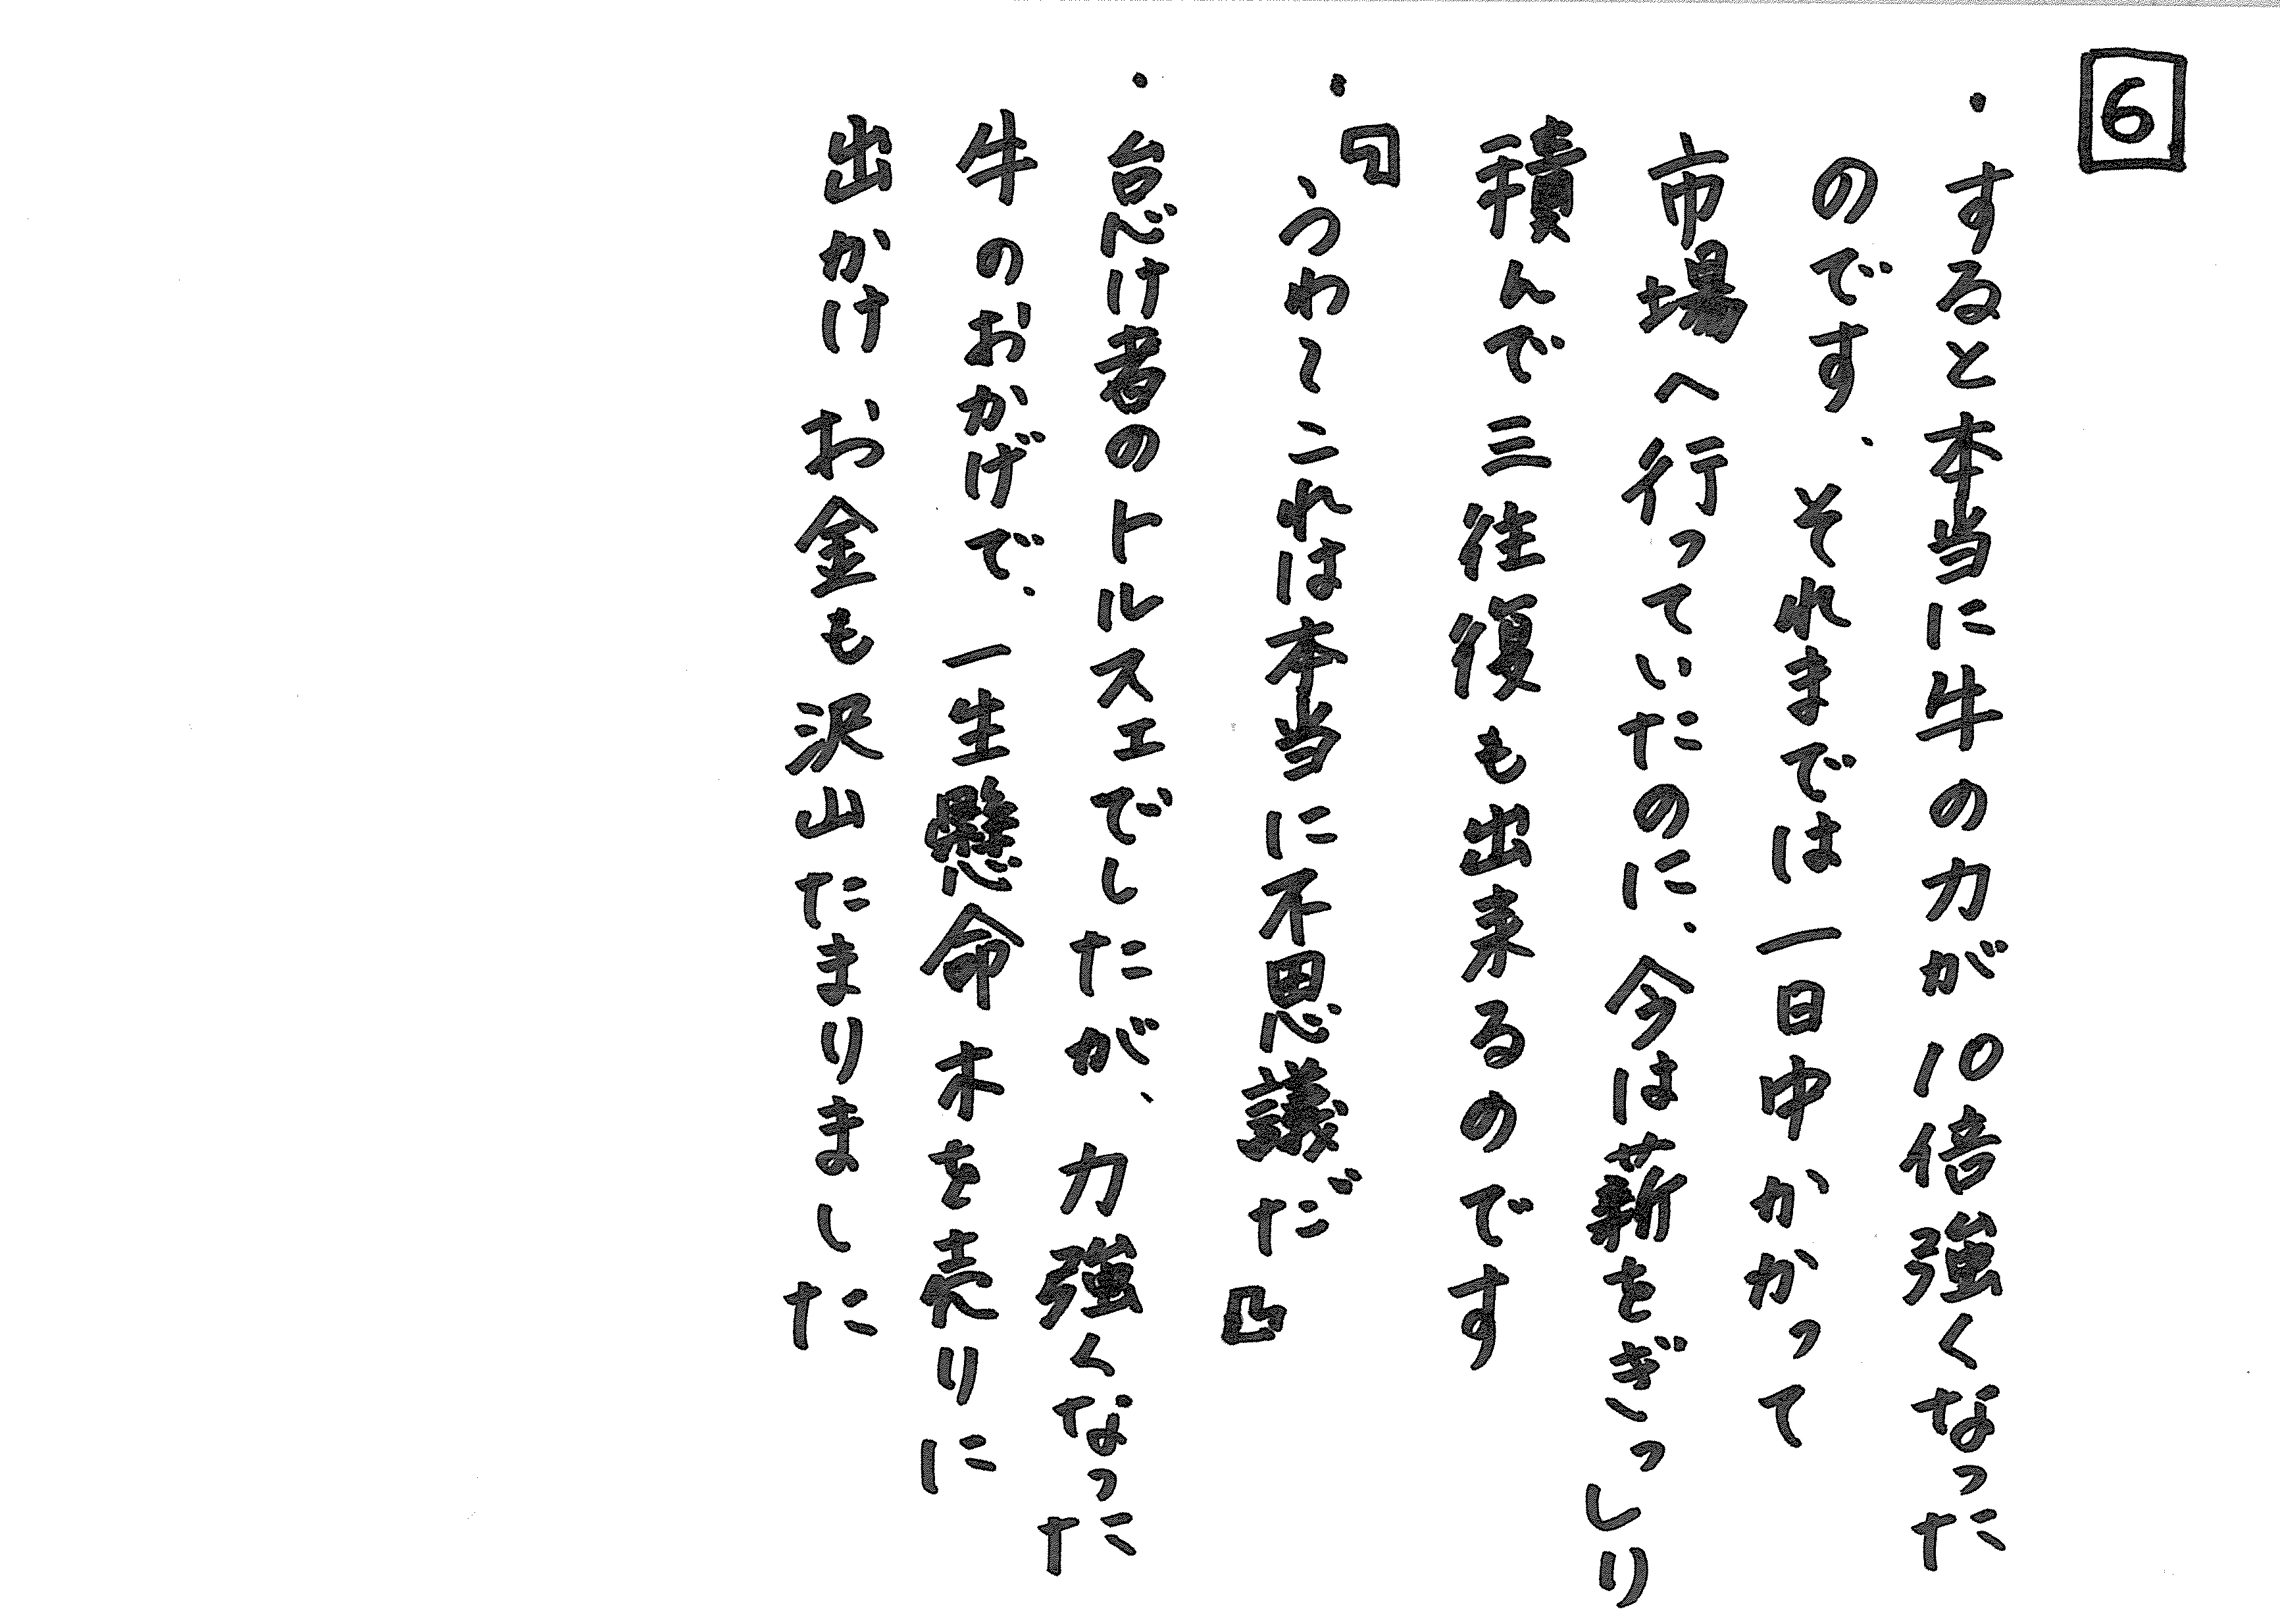 6
・すると本当に牛の力が10倍強くなった
のです、それまでは一日中かかって
市場へ行っていたのに、今は薪をぎっしり
積んで三往復も出来るのです
・『うわ〜これは本当に不思議だ』
・怠け者のトルスエでしたが、力強くなった
牛のおかげで、一生懸命木を売りに
出かけお金も沢山たまりました